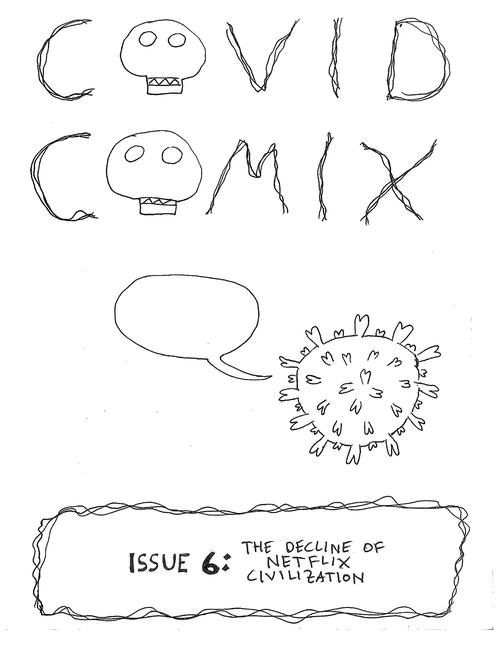 COVID
COMIX
ISSUE 6:
THE DECLINE OF
NETFLIX
CIVILIZATION